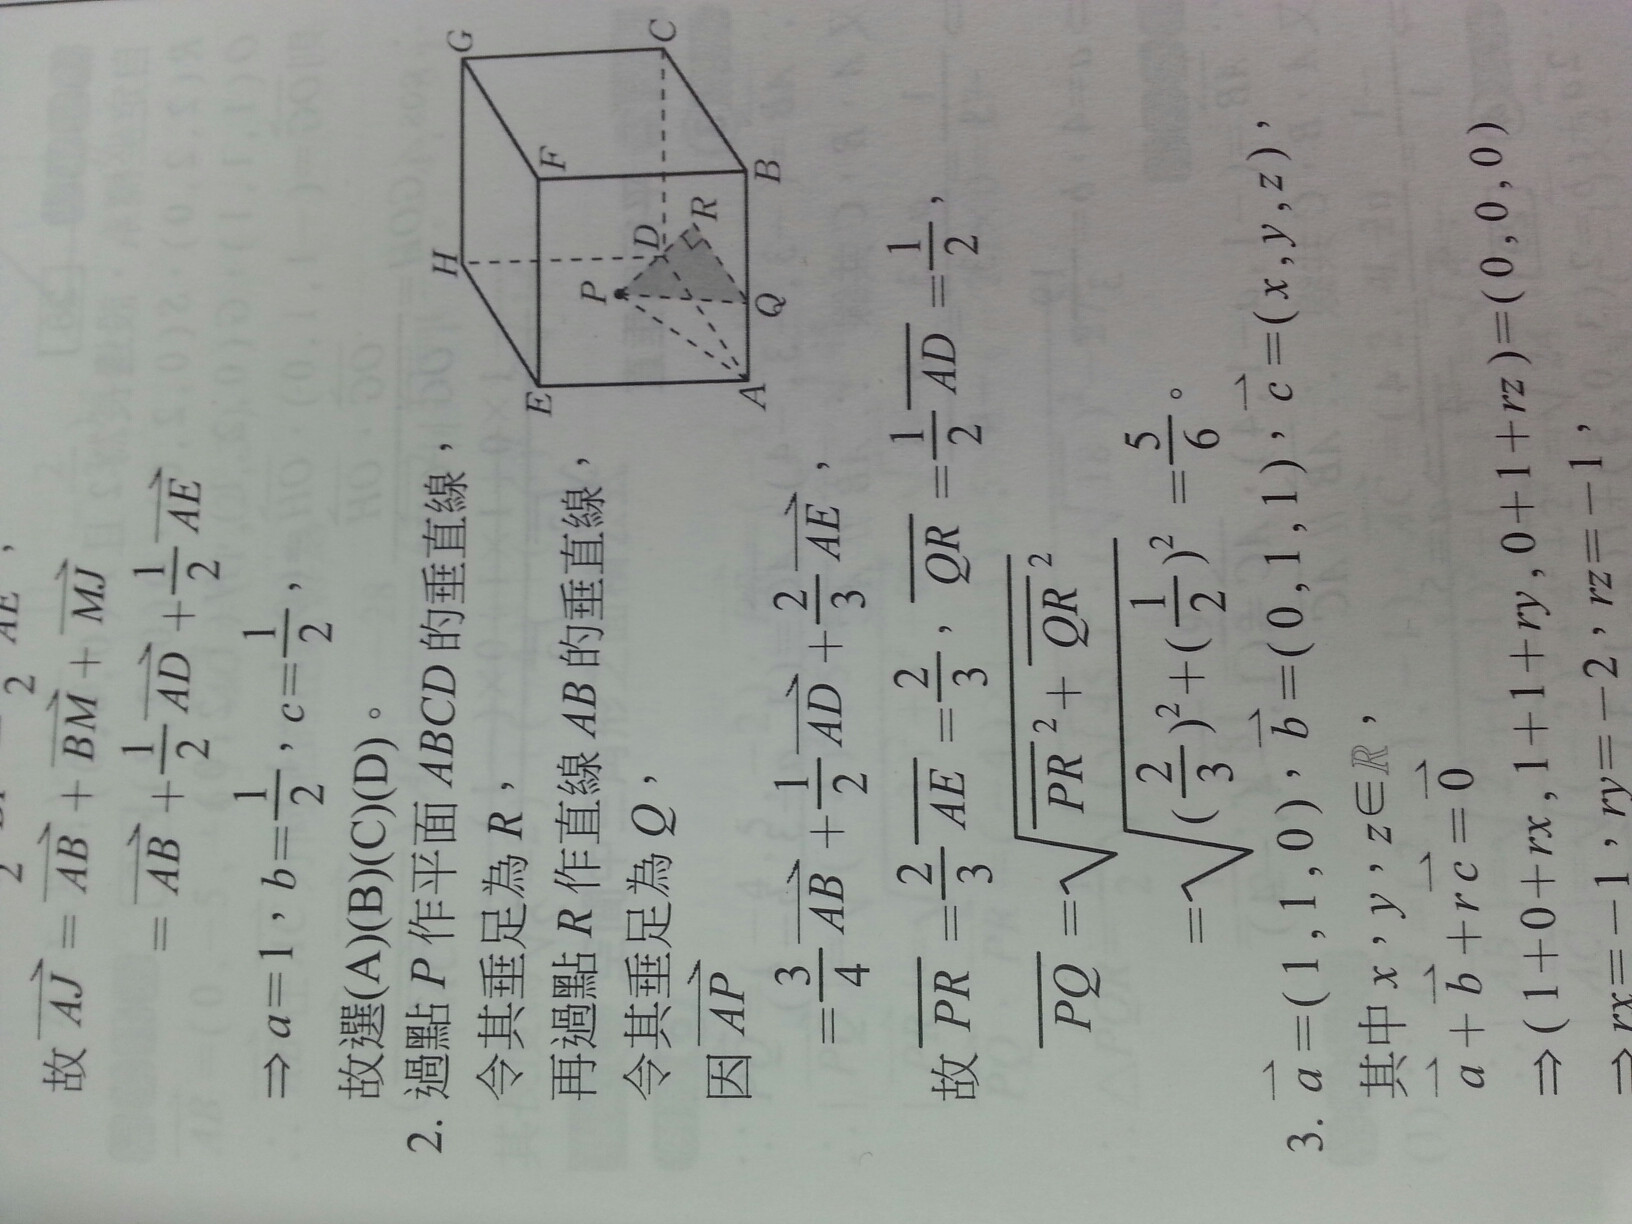 故 \overrightarrow{AJ} = \overrightarrow{AB} + \overrightarrow{BM} + \overrightarrow{MJ}
= \overrightarrow{AB} + \frac{1}{2}\overrightarrow{AD} + \frac{1}{2}\overrightarrow{AE}
⇒ a=1, b=\frac{1}{2}, c=\frac{1}{2},
故選(A)(B)(C)(D)。
2. 過點 P 作平面 ABCD 的垂直線,
令其垂足為 R,
再過點 R 作直線 AB 的垂直線,
令其垂足為 Q,
因 \overrightarrow{AP}
= \frac{3}{4}\overrightarrow{AB} + \frac{1}{2}\overrightarrow{AD} + \frac{2}{3}\overrightarrow{AE},
故 \overline{PR} = \frac{2}{3}\overline{AE} = \frac{2}{3}, \overline{QR} = \frac{1}{2}\overline{AD} = \frac{1}{2},
\overline{PQ} = \sqrt{\overline{PR}^2 + \overline{QR}^2}
= \sqrt{(\frac{2}{3})^2 + (\frac{1}{2})^2} = \frac{5}{6}。
H
G
E
F
P
D
C
R
A
Q
B
3. \overrightarrow{a} = (1, 1, 0), \overrightarrow{b} = (0, 1, 1), \overrightarrow{c} = (x, y, z),
其中 x, y, z∈ℝ,
\overrightarrow{a} + \overrightarrow{b} + r\overrightarrow{c} = \overrightarrow{0}
⇒ (1+0+rx, 1+1+ry, 0+1+rz) = (0, 0, 0)
⇒ rx=−1, ry=−2, rz=−1,